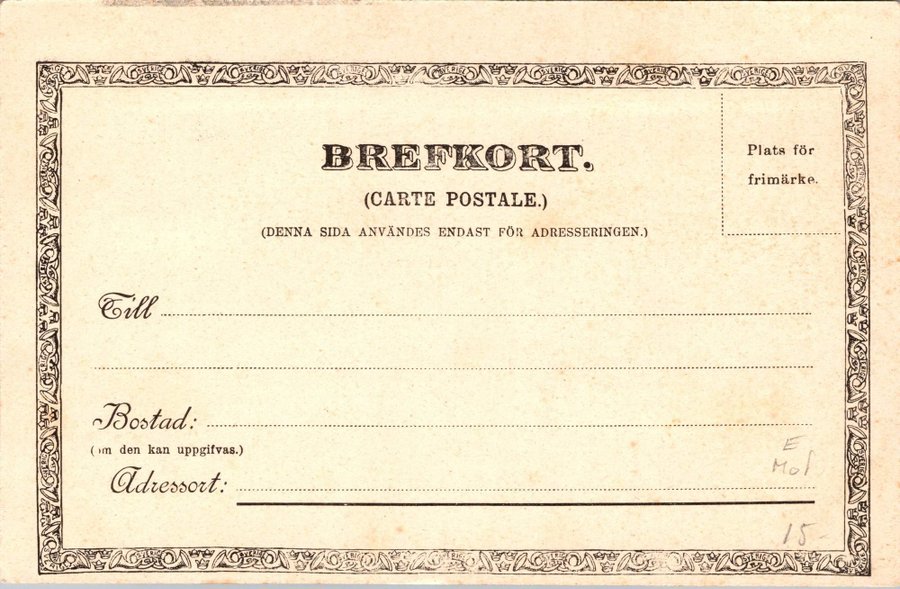 BREFKORT.
(CARTE POSTALE.)
(DENNA SIDA ANVÄNDES ENDAST FÖR ADRESSERINGEN.)
Plats för
frimärke.
Till
Bostad:
(om den kan uppgifvas.)
Adressort:
E
15-